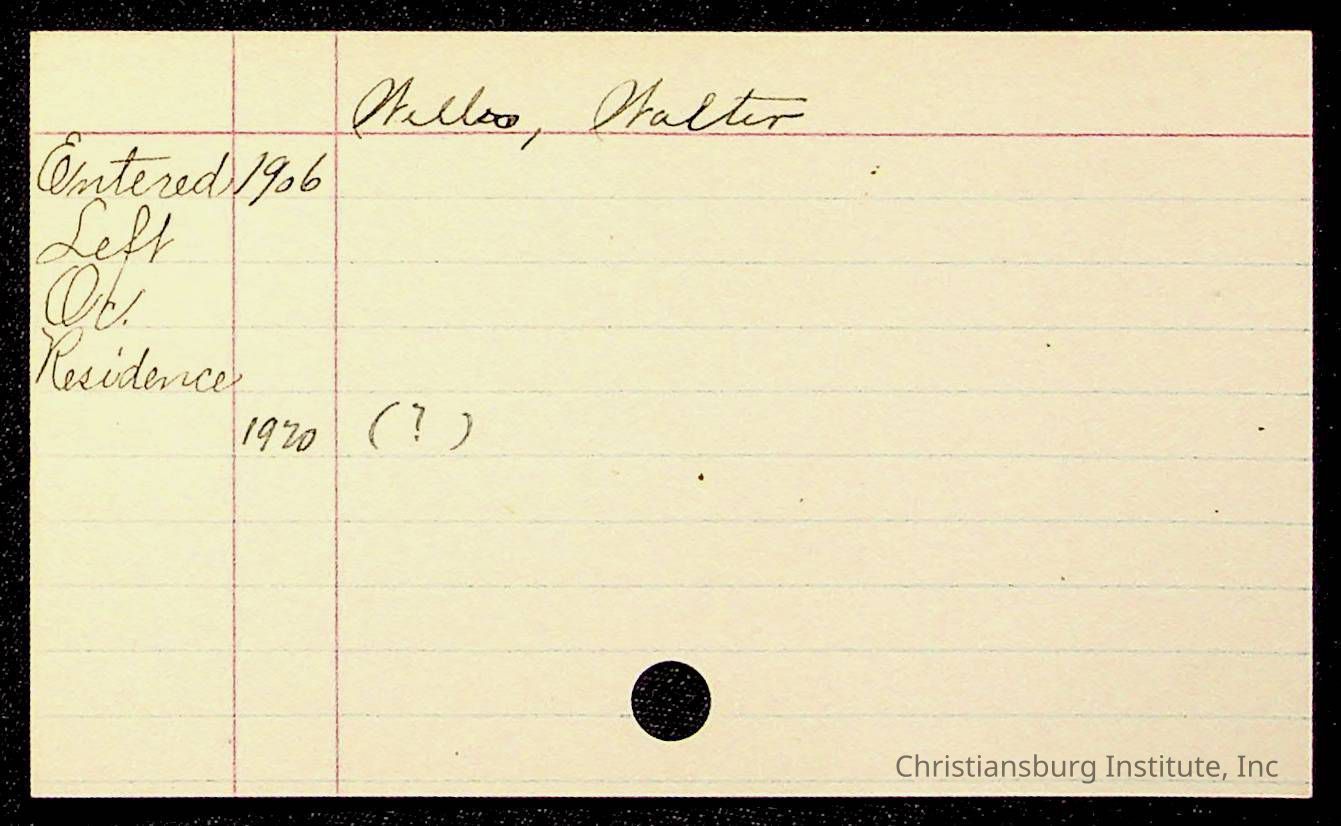 Willis, Walter
Entered 1906
Left
Oc.
Residence
1920 ( ? )
Christiansburg Institute, Inc